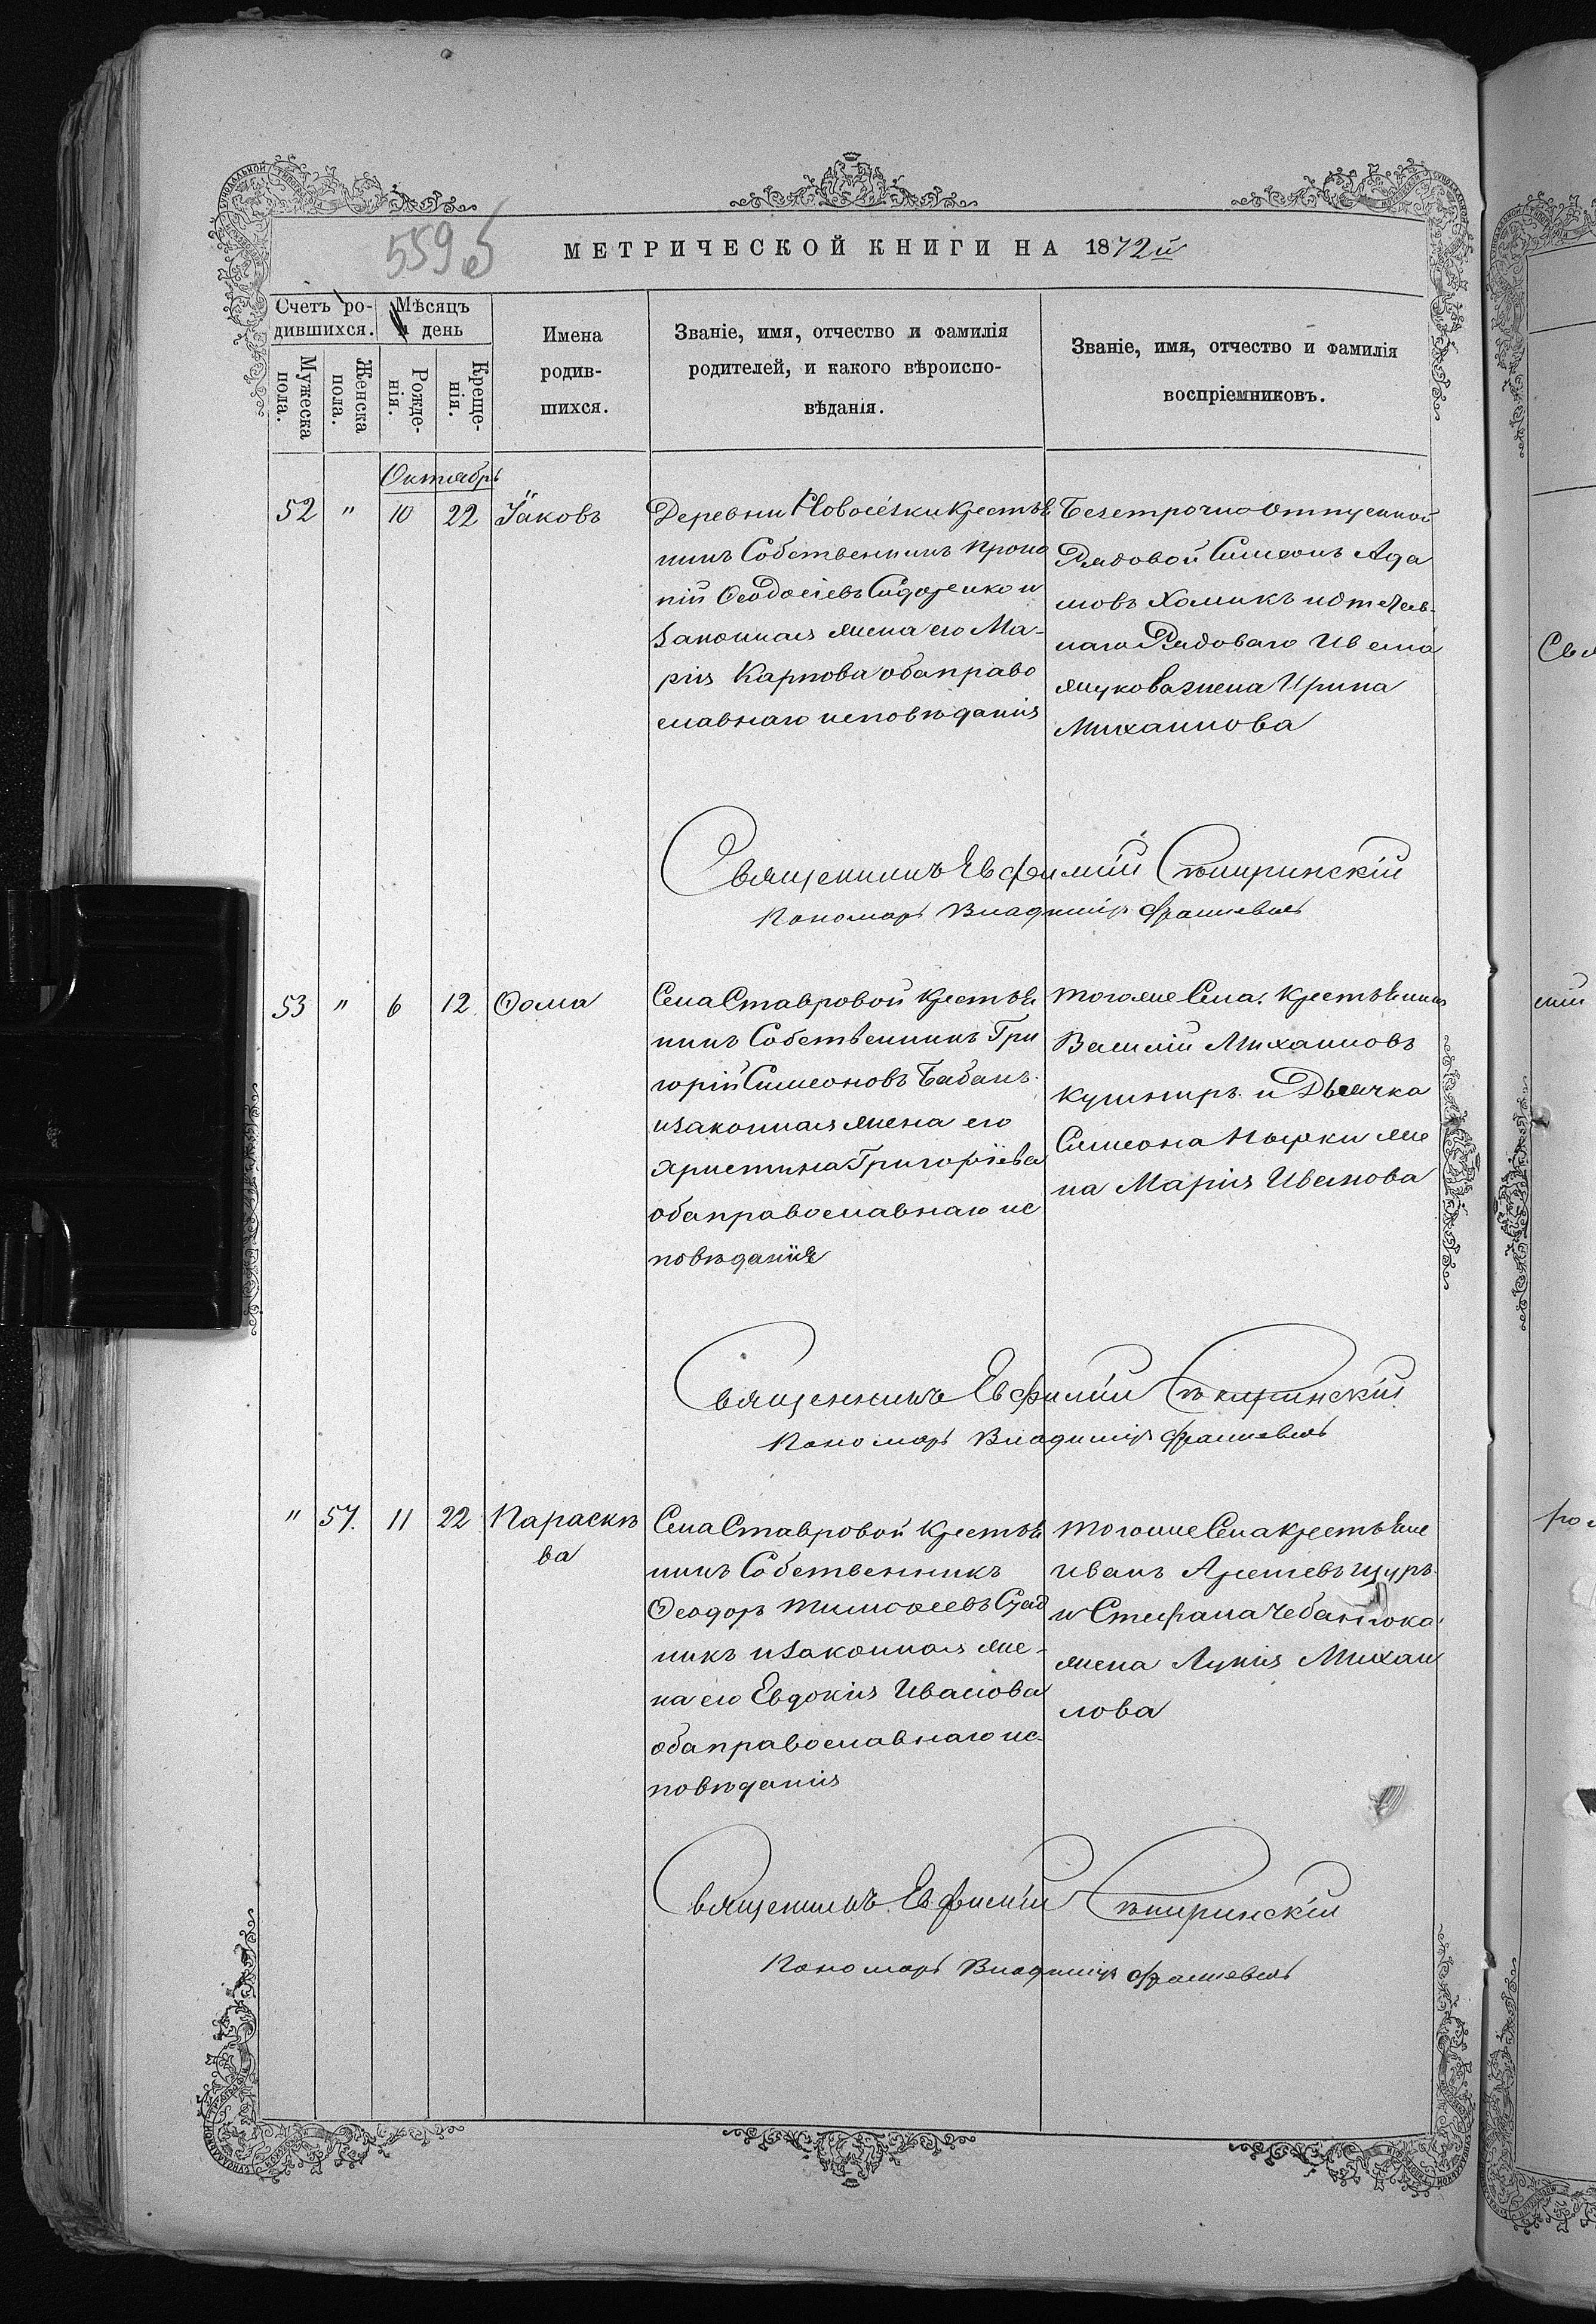 559 об
МЕТРИЧЕСКОЙ КНИГИ НА 1872й
Счетъ ро-
дившихся.
Мѣсяцъ
и день
Мужеска
пола.
Женска
пола.
Рожде-
нія.
Креще-
нія.
Имена
родив-
шихся.
Званіе, имя, отчество и фамилія
родителей, и какого вѣроиспо-
вѣданія.
Званіе, имя, отчество и фамилія
воспріемниковъ.
Октябрь
52 " 10 22 Іаковъ
Деревни Новосёлки Крестья
нинъ Собственникъ Проко
пій Ѳеодосіевъ Сидоренко и
законная жена его Ма-
рія Карпова оба право
славнаго исповѣданія
Безсрочно отпускной
Рядовой Симеонъ Ада
мовъ Хомикъ и отстав-
наго Рядоваго Ивана
жена Ирина
Михаилова
Священникъ Евфимій
Пономарь Владиміръ
53 " 6 12 Ѳома
Села Ставровой Крестья
нинъ Собственникъ Гри
горій Симеоновъ Бабанъ
и законная жена его
Христина Григоріева
оба православнаго ис
повѣданія
Того же Села Крестьянинъ
Василій Михаиловъ
Кушниръ и Дьячка
Симеона же
на Марія Иванова
Священникъ Евфимій
Пономарь Владиміръ
" 57. 11 22 Параскѣ
ва
Села Ставровой Крестья
нинъ Собственникъ
Ѳеодоръ Тимоѳеевъ
и законная же-
на его Евдокія Иванова
оба православнаго ис-
повѣданія
Того же Села Крестьяне
Иванъ Щуръ
и Стефана Чебанюка
жена Лукія Михаи
лова
Священникъ Евфимій
Пономарь Владиміръ